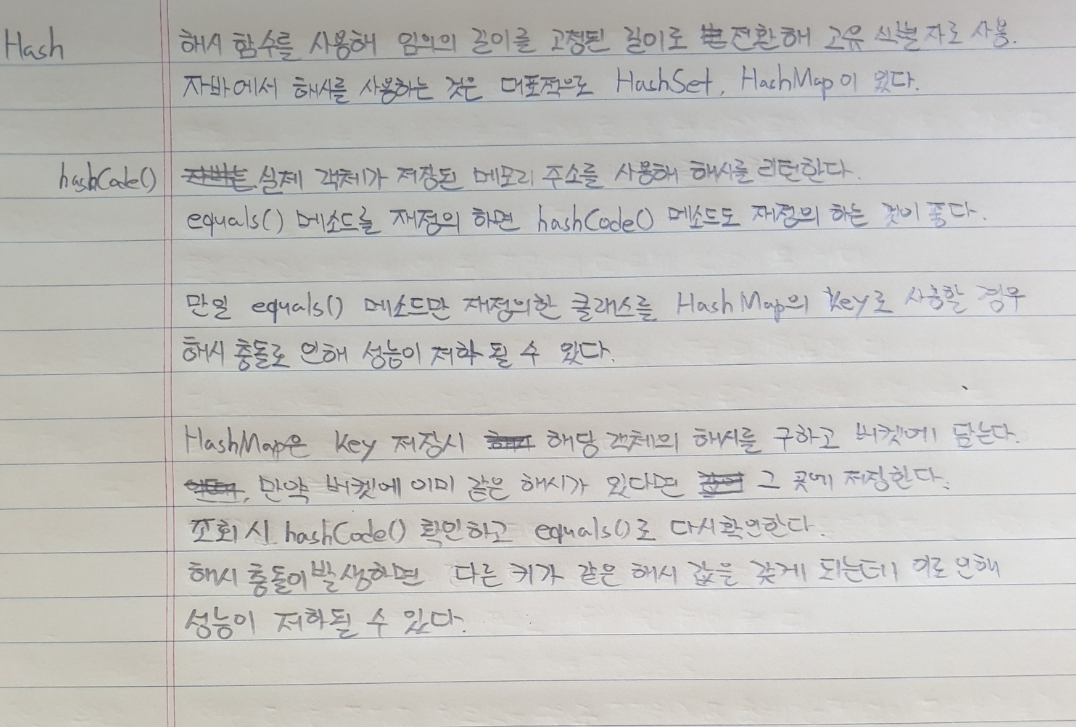 Hash 해시 함수를 사용해 임의의 길이를 고정된 길이로 전환해 고유 식별자로 사용.
자바에서 해시를 사용하는 것은 대표적으로 HashSet, HashMap이 있다.
hashCode() 실제 객체가 저장된 메모리 주소를 사용해 해시를 리턴한다.
equals() 메소드를 재정의 하면 hashCode() 메소드도 재정의 하는 것이 좋다.
만일 equals() 메소드만 재정의한 클래스를 HashMap의 key로 사용할 경우
해시 충돌로 인해 성능이 저하 될 수 있다.
HashMap은 Key 저장시 해당 객체의 해시를 구하고 버켓에 담는다.
만약 버켓에 이미 같은 해시가 있다면 그 곳에 저장한다.
조회시 hashCode() 확인하고 equals()로 다시확인한다.
해시 충돌이 발생하면 다른 키가 같은 해시 값을 갖게 되는데 이로 인해
성능이 저하될 수 있다.